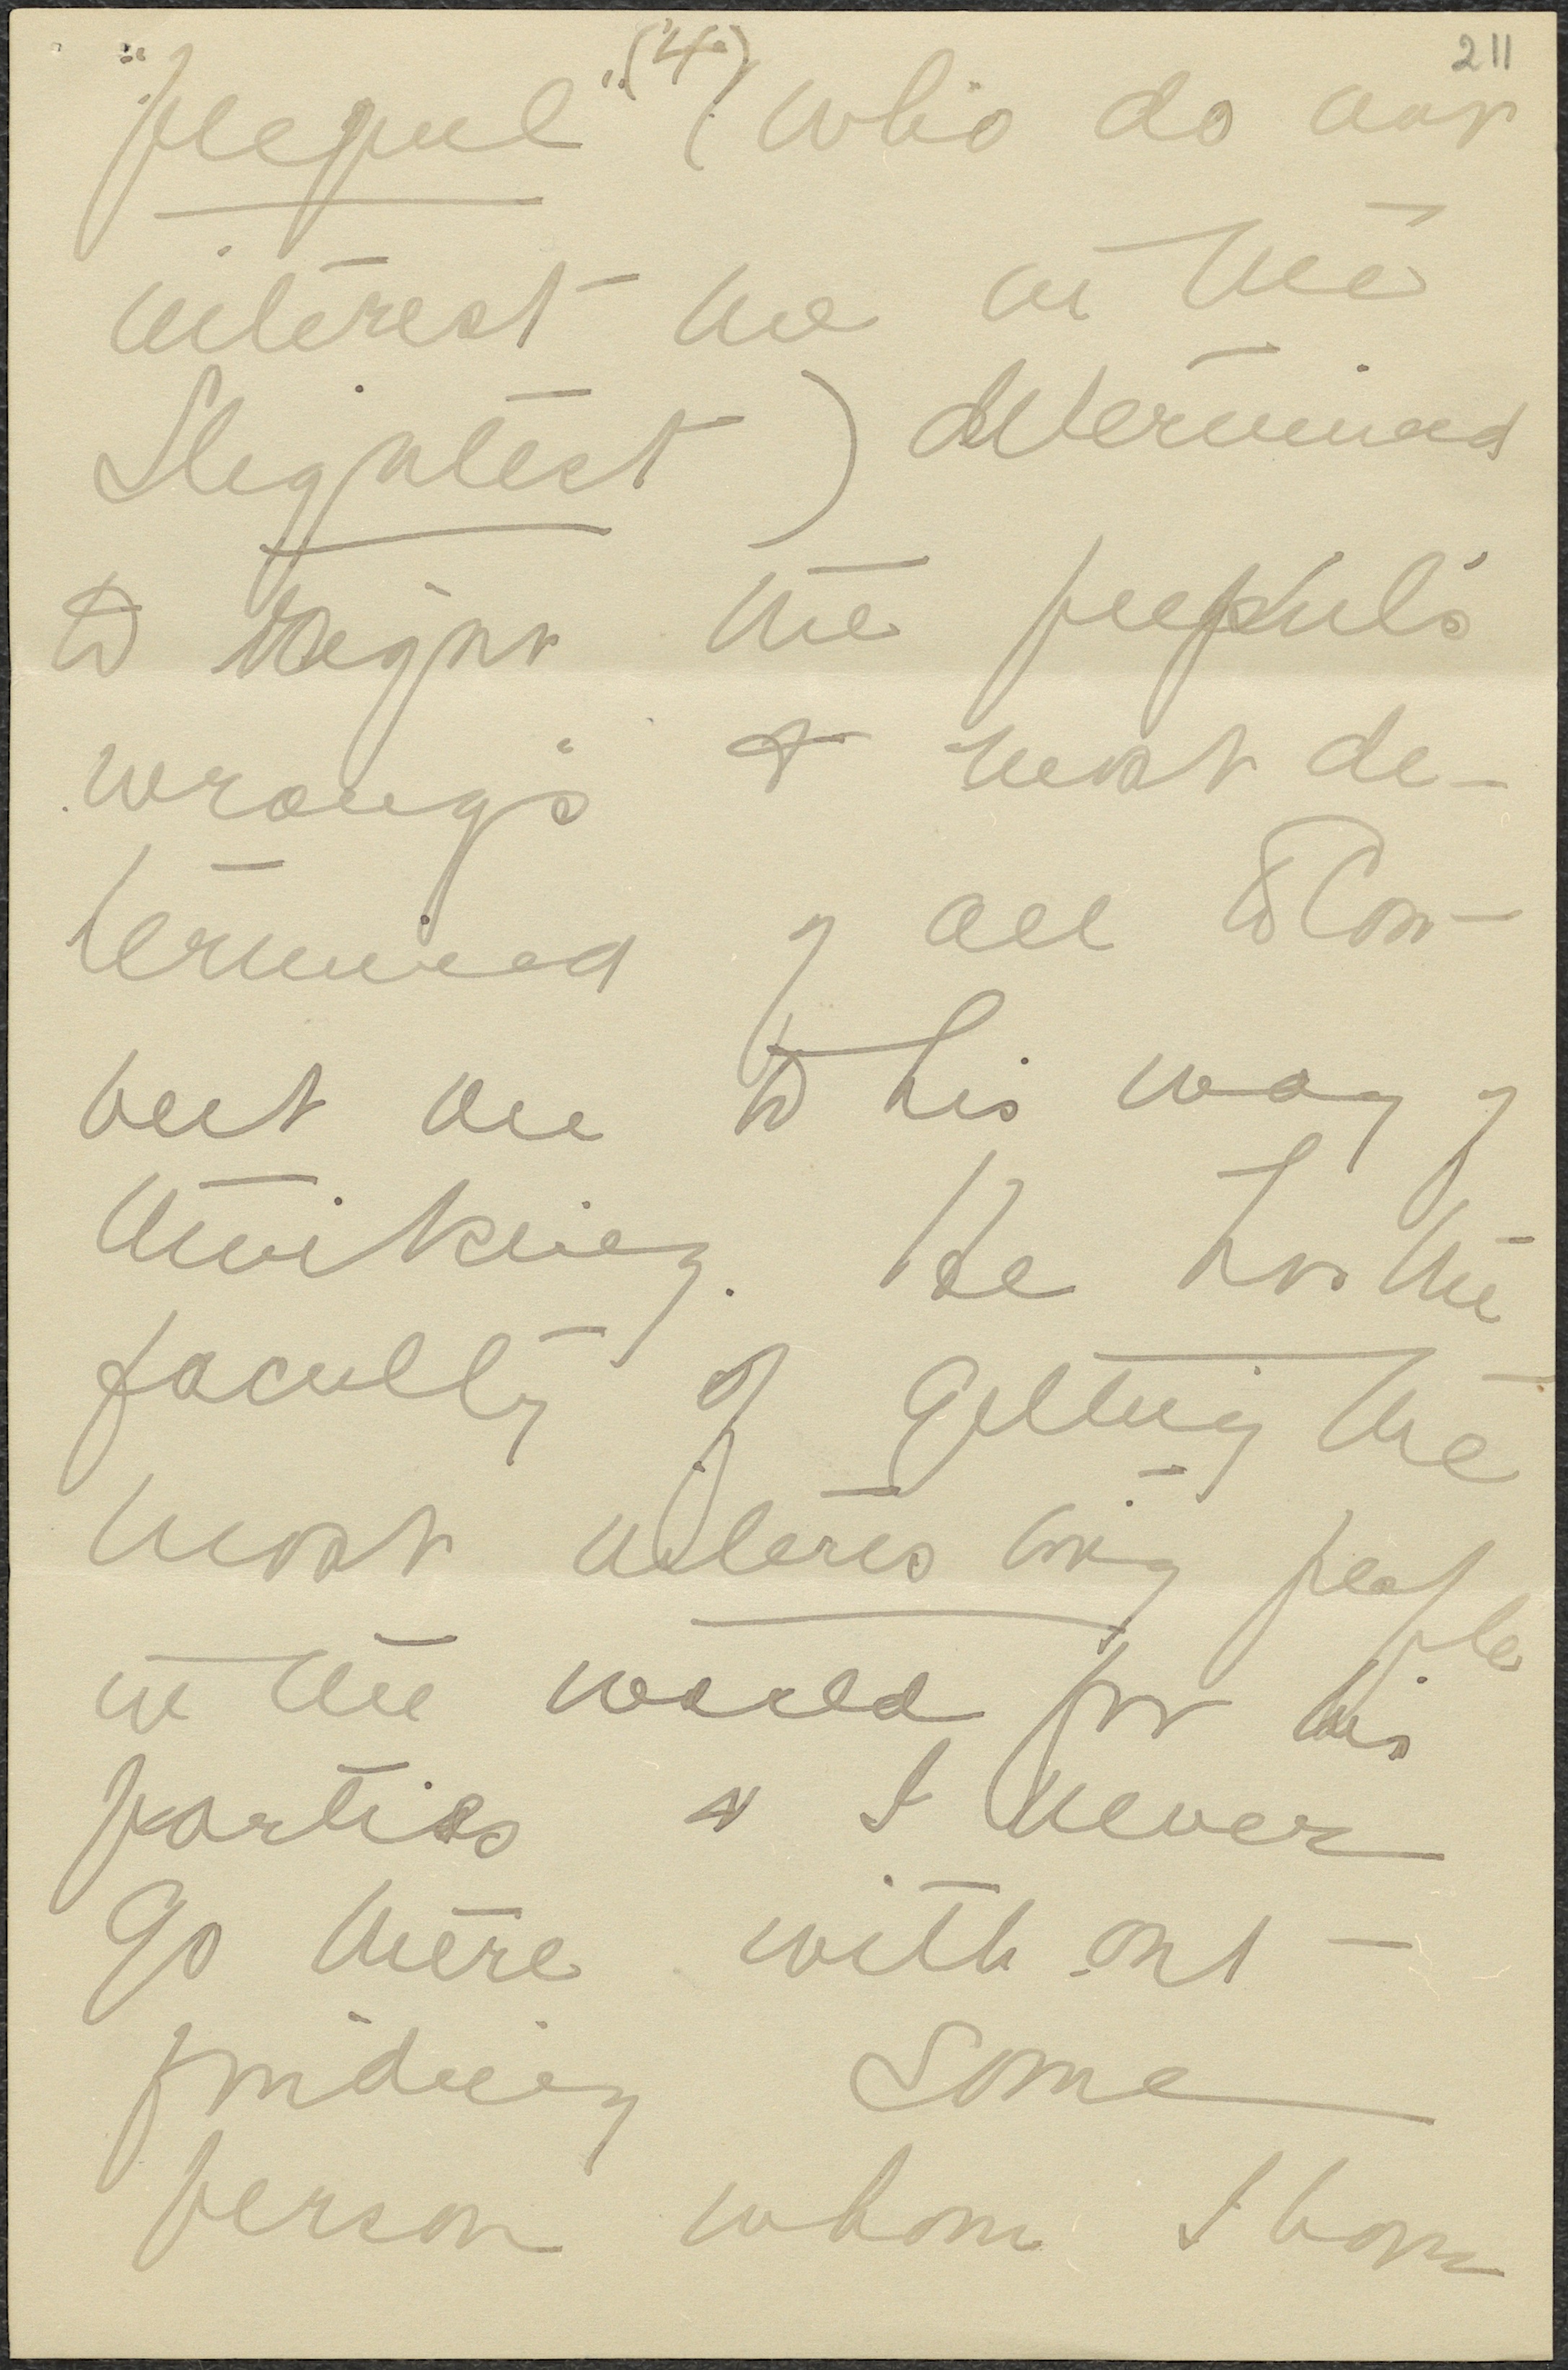 (4) 211
"peepul" (who do not
interest me in the
slightest) determined
to right the peepul's
wrongs & most de-
termined of all to con-
vert me to his way of
thinking. He has the
faculty of getting the
most interesting people
in the world for his
parties & I never
go there without
finding some
person whom I have